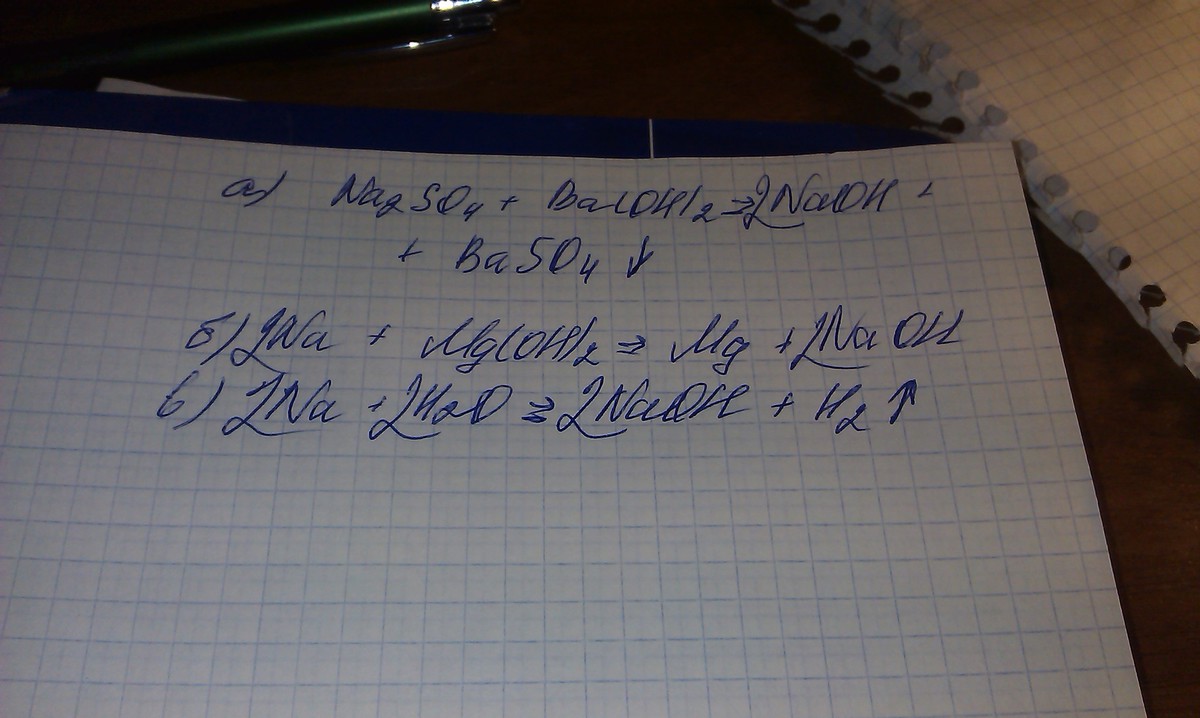 а) Na₂SO₄ + Ba(OH)₂ ⇒ 2NaOH +
+ BaSO₄ ↓
б) 2Na + Mg(OH)₂ ⇒ Mg + 2NaOH
в) 2Na + 2H₂O ⇒ 2NaOH + H₂ ↑